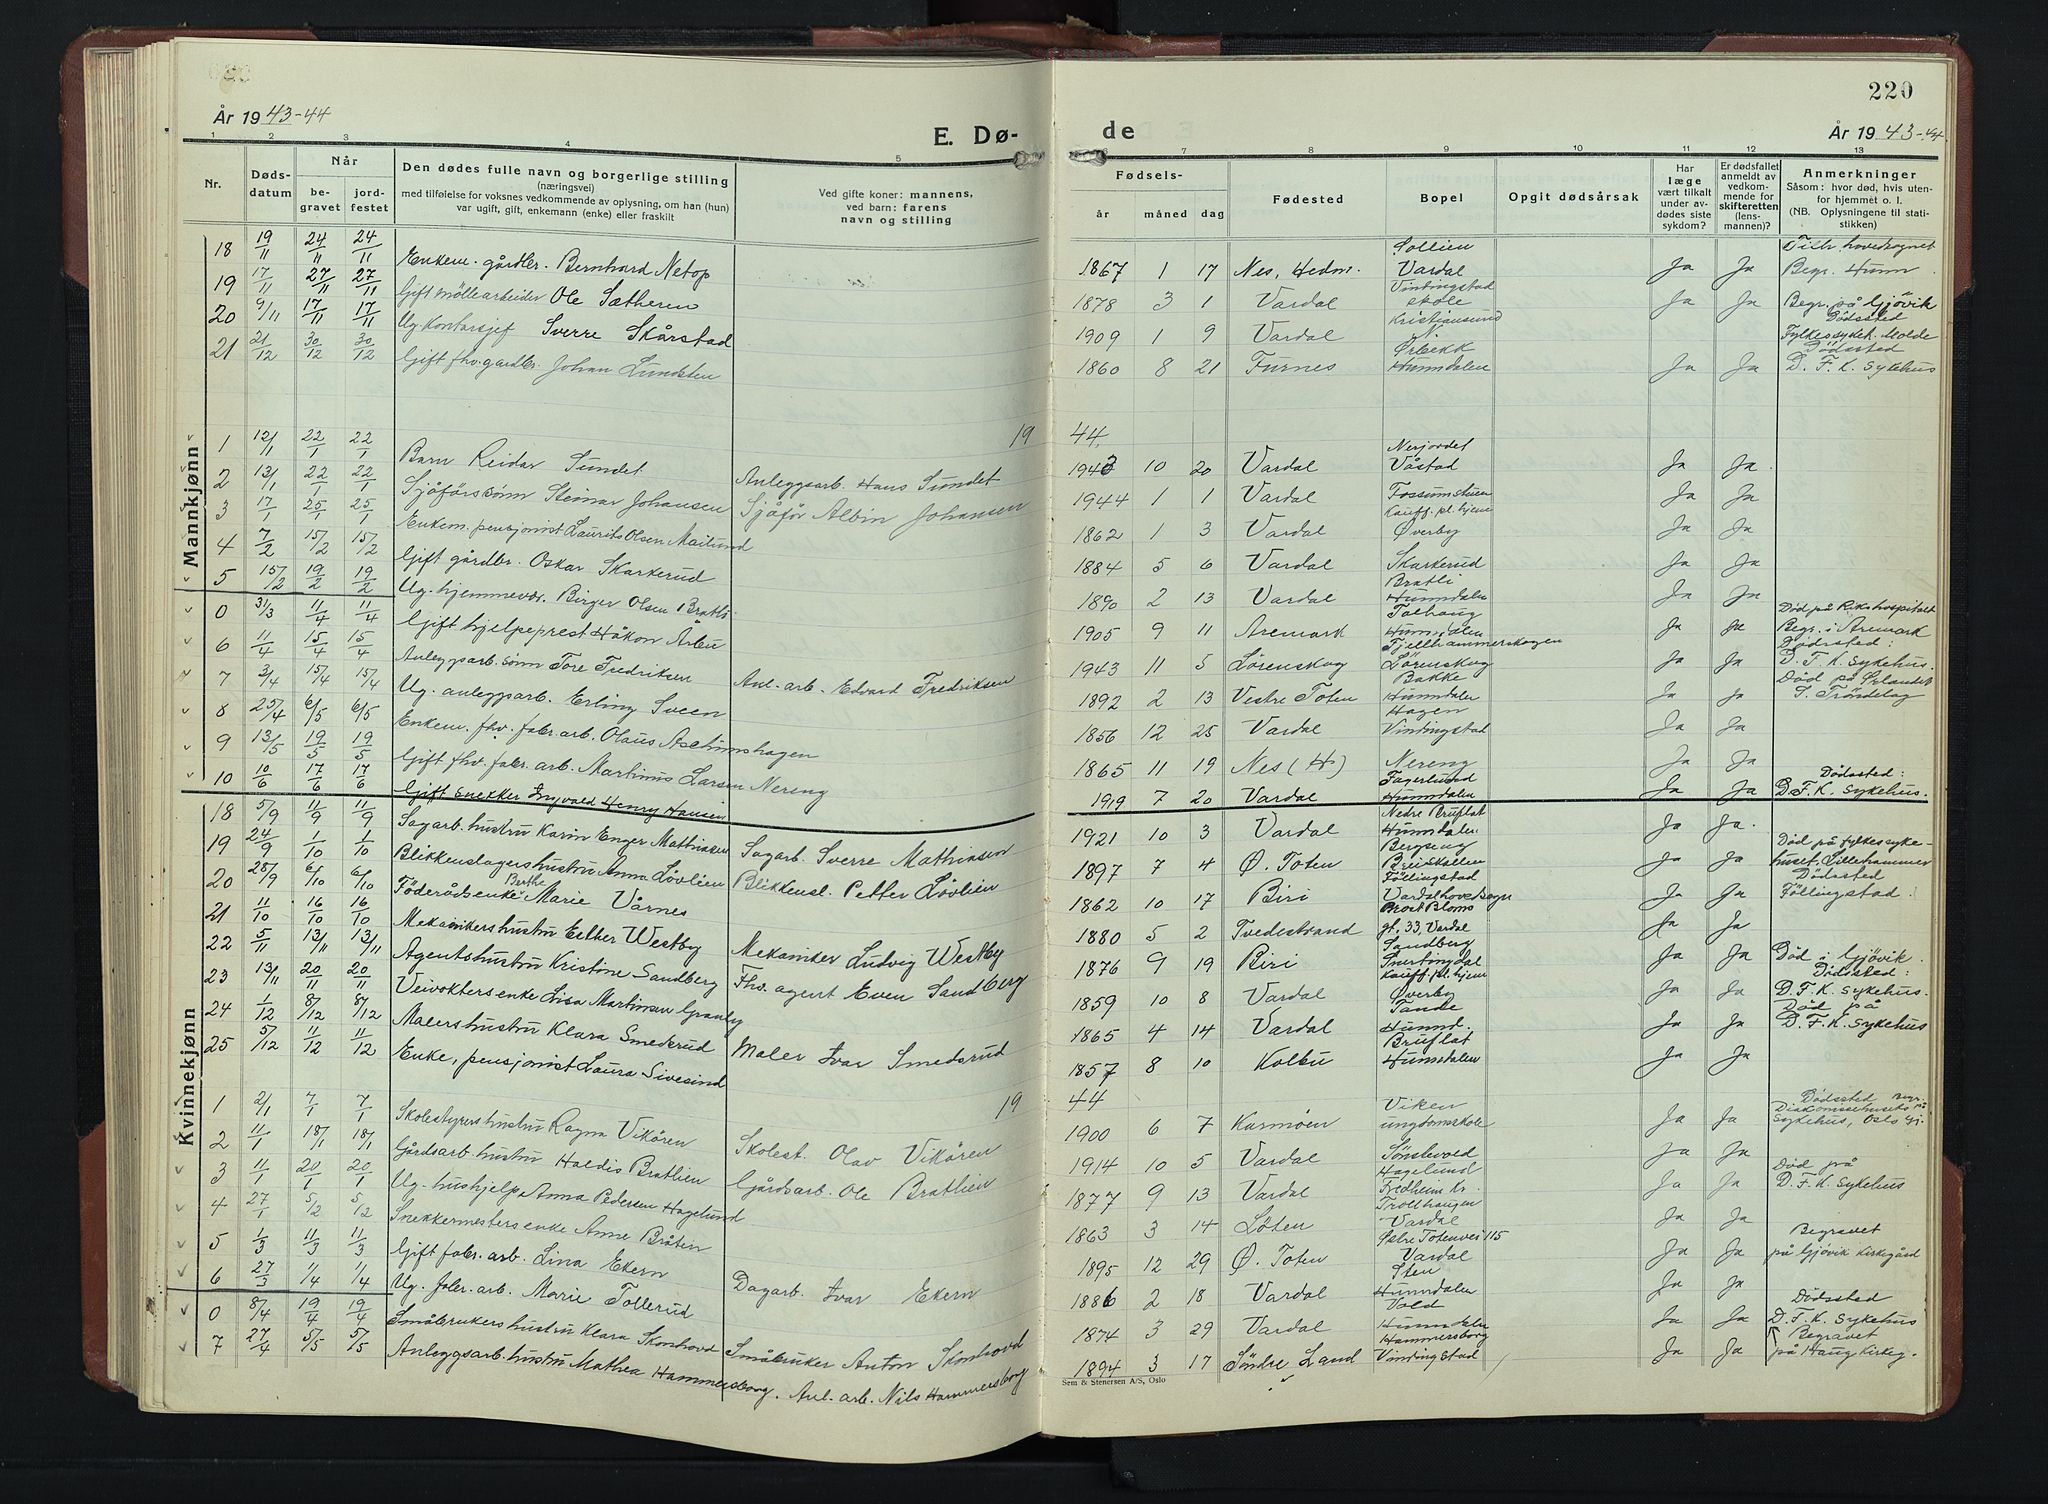 220
År 1943-44
E. Dø-
de
År 1943-44
1 2 3 4 5
6 7 8 9 10 11 12 13
Nr.
Døds-
datum
Når
be-
gravet
jord-
festet
Den dødes fulle navn og borgerlige stilling
(næringsvei)
med tilføielse for voksnes vedkommende av oplysning, om han (hun)
var ugift, gift, enkemann (enke) eller fraskilt
Ved gifte koner: mannens,
ved barn: farens
navn og stilling
Fødsels-
år måned dag
Fødested
Bopel
Opgit dødsårsak
Har
læge
vært tilkalt
under av-
dødes siste
sykdom?
Er dødsfallet
anmeldt av
vedkom-
mende for
skifteretten
(lens-
mannen)?
Anmerkninger
Såsom: hvor død, hvis uten-
for hjemmet o. l.
(NB. Oplysningene til stati-
stikken)
Mannkjønn
18 19/11 24/11 24/11 Enkem. gårdbr. Bernhard Netop 1867 1 17 Nes, Hedm. Sollien Vardal Ja Ja Tilh. hovedsognet Begr. Hunn
19 17/11 27/11 27/11 Gift møllearbeider Ole Sætheren 1878 3 1 Vardal Vindingstad skole Ja Ja Begr. på Gjøvik
20 9/11 17/11 17/11 Ug. Kontorsjef Sverre Skårstad 1909 1 9 Vardal Kristiansund Dødssted Fylkessykeh. Molde
21 21/12 30/12 30/12 Gift fhv. gårdbr. Johan Lundsten 1860 8 21 Furnes Ørbekk Hunndalen Ja Ja Dødssted D. F. K. Sykehus
1944
1 12/1 22/1 22/1 Barn Reidar Sundet Anleggsarb. Hans Sundet 1943 10 20 Vardal Nerjordet Våstad Ja Ja
2 13/1 22/1 22/1 Sjåførssønn Steinar Johansen Sjåfør Albin Johansen 1944 1 1 Vardal Fossumstuen Ja Ja
3 17/1 25/1 25/1 Enkem. pensjonist Laurits Olsen Mailund 1862 1 3 Vardal Kauff. pl. hjem Øverby Ja Ja
4 7/2 15/2 15/2 Gift gårdbr. Oskar Skarkerud 1884 5 6 Vardal Skarkerud Ja Ja
5 15/2 19/2 19/2 Ug. hjemmevær. Birger Olsen Bratli 1890 2 13 Vardal Bratli Hunndalen Ja Ja
0 31/3 11/4 11/4 Gift hjelpeprest Håkon Årbu 1905 9 11 Aremark Solhaug Hunndalen Ja Ja Død på Rikshospitalet Begr. i Aremark
6 11/4 15/4 15/4 Anleggsarb. sønn Tore Fredriksen Anl. arb. Edvard Fredriksen 1943 11 5 Lørenskog Fjellhammerskogen Lørenskog Ja Ja Dødssted: D. F. K. Sykehus.
7 3/4 15/4 15/4 Ug. anleggsarb. Erling Sveen 1892 2 13 Vestre Toten Bakke Hunndalen Ja Ja Død på Ørlandet S. Trøndelag
8 25/4 6/5 6/5 Enkem. fhv. fabr. arb. Olaus Aschimshagen 1856 12 25 Vardal Hagen Vindingstad Ja Ja
9 13/5 19/5 19/5 Gift fhv. fabr. arb. Martinus Larsen Nereng 1865 11 19 Nes (H) Nereng Ja Ja
10 10/6 17/6 17/6 Gift snekker Ingvald Henry Hansen 1919 7 20 Vardal Fagerlund Hunndalen Ja Ja Dødssted: D. F. K. Sykehus.
Kvinnekjønn
18 5/9 11/9 11/9 Sagarb. hustru Karin Enger Mathiasen Sagarb. Sverre Mathiasen 1921 10 3 Vardal Nedre Bruflat Hunndalen Ja Ja
19 24/9 1/10 1/10 Blikkenslagershustru Anna Løvlien Blikkensl. Petter Løvlien 1897 7 4 Ø. Toten Bergseng Breiskallen Ja Ja Død på fylkessykehuset, Lillehammer
20 28/9 6/10 6/10 Føderådsenke Berthe Marie Vårnes 1862 10 17 Biri Føllingstad Vardal hovedsogn Ja Ja Dødssted Føllingstad
21 11/10 16/10 16/10 Mekanikers hustru Esther Westby Mekaniker Ludvig Westby 1880 5 2 Tvedestrand Broet Bloms gt. 33, Vardal Ja Ja
22 5/11 13/11 13/11 Agentshustru Kristine Sandberg Fhv. agent Even Sandberg 1876 9 19 Biri Sandberg Snertingdal Ja Ja Død i Gjøvik
23 13/11 20/11 20/11 Veivokters enke Lisa Martinsen Granby 1859 10 8 Vardal Kauff. pl. hjem Øverby Ja Ja Dødssted: D. F. K. Sykehus.
24 1/12 8/12 8/12 Malershustru Klara Smedsrud Maler Ivar Smedsrud 1865 4 14 Vardal Tande Hunnd. Ja Ja Død på D. F. K. Sykehus
25 5/12 11/12 11/12 Enke, pensjonist Laura Sivesind 1857 8 10 Kolbu Bruflat Hunndalen Ja Ja
1944
1 2/1 7/1 7/1 Skolestyrershustru Ragna Vikören Skolest. Olav Vikören 1900 6 7 Karmøen Viken ungdomsskole Ja Ja Dødssted Diakonissehusets Sykehus, Oslo
2 11/1 18/1 18/1 Gårdsarb. hustru Haldis Bratlien Gårdsarb. Ole Bratlien 1914 10 5 Vardal Sønstevold Ja Ja
3 11/1 20/1 20/1 Ug. hushjelp Anna Pedersen Hagelund 1877 9 13 Vardal Hagelund Fredheim Ja Ja Død på D. F. K. Sykehus
4 27/1 5/2 5/2 Snekkermesters enke Anne Bråten 1863 3 14 Løten Trollhaugen Vardal Ja Ja
5 1/3 11/3 11/3 Gift fabr. arb. Lina Ekern Dagarb. Ivar Ekern 1895 12 29 Ø. Toten Østre Totenvei 115 Vardal Ja Ja Begravet på Gjøvik Kirkegård
6 27/3 1/4 1/4 Ug. fabr. arb. Marie Tollerud 1886 2 18 Vardal Sten Hunndalen Ja Ja
0 8/4 19/4 19/4 Småbrukers hustru Klara Skonhovd Småbruker Anton Skonhovd 1874 3 29 Vardal Vold Hunndalen Ja Ja Dødssted D. F. K. Sykehus Begravet på Haug Kirkeg.
7 27/4 5/5 5/5 Anleggsarb. hustru Mathea Hammersborg. Anl. arb. Nils Hammersborg 1894 3 17 Søndre Land Hammersborg Vindingstad Ja Ja
Sem & Stenersen A/S, Oslo